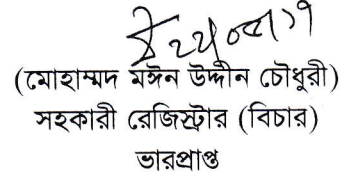 (মোহাম্মদ মঈন উদ্দীন চৌধুরী)
সহকারী রেজিস্ট্রার (বিচার)
ভারপ্রাপ্ত